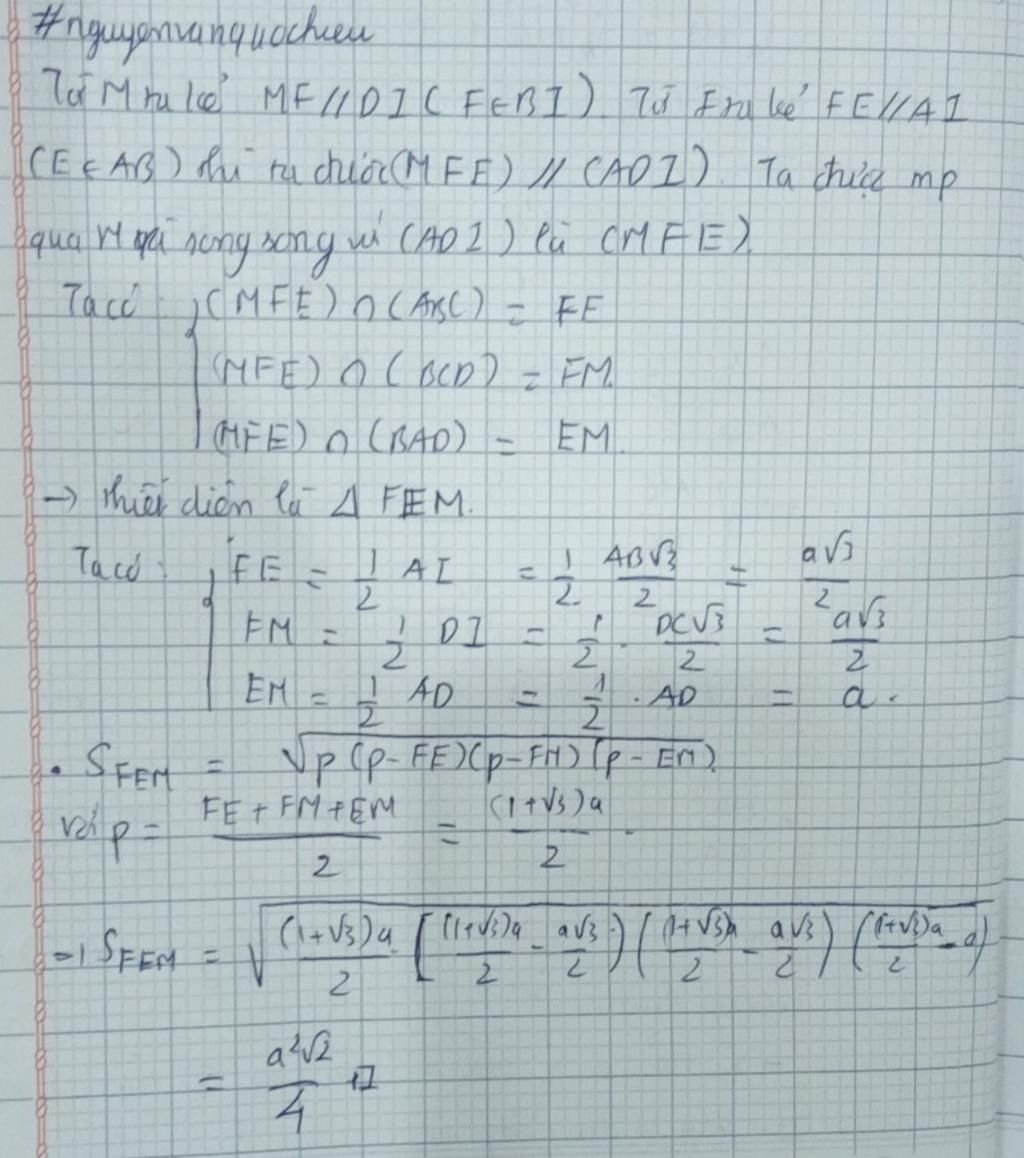 #nguyenvanquochieu
Từ M ta kẻ MF//DI (F∈BI). Từ F ta kẻ FE//AI
(E∈AB) thì ta được (MFE) // (ADI). Ta được mp
qua M và song song với (ADI) là (MFE).
Ta có { (MFE) ∩ (ABC) = FE
(MFE) ∩ (BCD) = FM.
(MFE) ∩ (BAD) = EM.
→ thiết diện là Δ FEM.
Ta có: { FE = 1/2 AI = 1/2 AB√3/2 = a√3/2
FM = 1/2 DI = 1/2 . DC√3/2 = a√3/2
EM = 1/2 AD = 1/2 . AD = a.
• S_FEM = √p(p-FE)(p-FM)(p-EM).
với p = (FE+FM+EM)/2 = (1+√3)a/2.
=> S_FEM = √(1+√3)a/2 [(1+√3)a/2 - a√3/2)((1+√3)a/2 - a√3/2)((1+√3)a/2 - a)
= a²√2/4